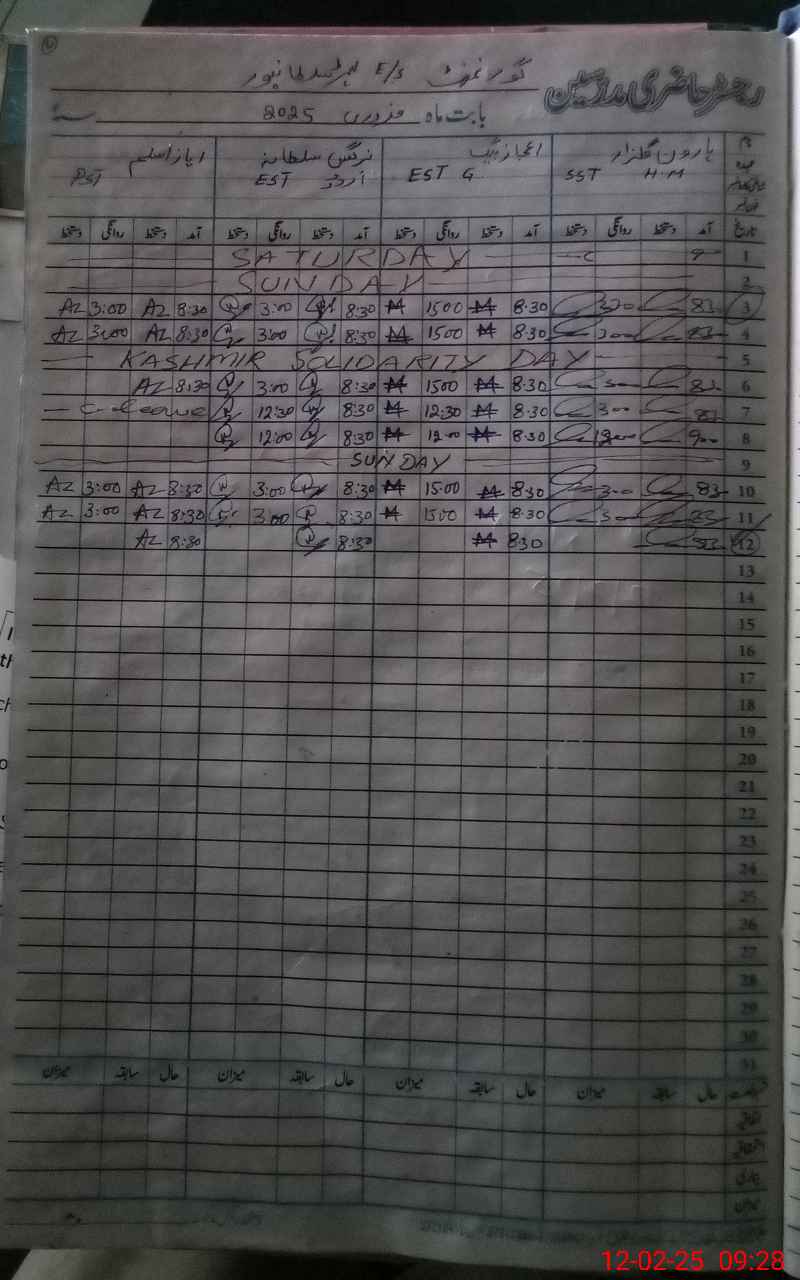 رجسٹر حاضری مدرسین
گورنمنٹ E/S
بابت ماہ فروری 2025 سنہ
ہارون گلزار اعجاز بیگ نرگس سلطانہ ایاز اسلم
SST H.M EST G EST اردو PST
تاریخ آمد دستخط روانگی دستخط آمد دستخط روانگی دستخط آمد دستخط روانگی دستخط آمد دستخط روانگی دستخط
SATURDAY 1
SUNDAY 2
AZ 3:00 AZ 8:30 3:00 8:30 1500 8.30 3
AZ 3:00 AZ 8:30 3:00 8:30 1500 8.30 4
KASHMIR SOLIDARITY DAY 5
AZ 8:30 3:00 8:30 1500 8.30 6
C-leave 12:30 8:30 12:30 8.30 300 7
12:00 8:30 12:00 8.30 900 8
SUNDAY 9
AZ 3:00 AZ 8:30 3:00 8:30 15:00 8.30 300 83 10
AZ 3:00 AZ 8:30 3:00 8:30 1500 8.30 11
AZ 8:30 8:30 830 12
13
14
15
16
17
18
19
20
21
22
23
24
25
26
27
28
29
30
31
حال سابقہ میزان حال سابقہ میزان حال سابقہ میزان حال سابقہ میزان
اتفاقیہ
بیماری
میزان
12-02-25 09:28